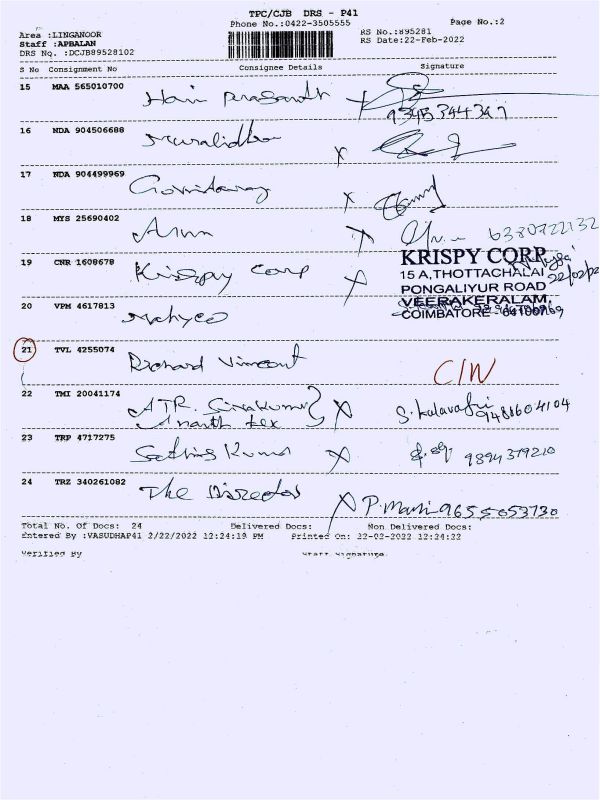 TPC/CJB DRS - P41
Phone No.:0422-3505555
Page No.:2
Area :LINGANOOR
Staff :APBALAN
DRS No. :DCJB89528102
RS No.:895281
RS Date:22-Feb-2022
S No Consignment No Consignee Details Signature
15 MAA 565010700 Hari Prasanth X
9345344347
16 NDA 904506688 Muralidhar X
17 NDA 904499969 Govindaraj X
18 MYS 25690402 Arun 6380722132
19 CNR 1608678 Krispy Corp X
KRISPY CORP
15 A,THOTTACHALAI
PONGALIYUR ROAD
VEERAKERALAM,
COIMBATORE - 641007
22/02/22
20 VPM 4617813 Mahyco
21 TVL 4255074 Richard Vincent
C/W
22 TMI 20041174 ATR. Sivakumar X S. kalavathi
Ananth tex 9488604104
23 TRP 4717275 Sathis Kumar X 9894379210
24 TRZ 340261082 The Director X P. Mani 9655053730
Total No. Of Docs: 24 Delivered Docs: Non Delivered Docs:
Entered By :VASUDHAP41 2/22/2022 12:24:19 PM Printed On: 22-02-2022 12:24:22
Verified By Staff Signature